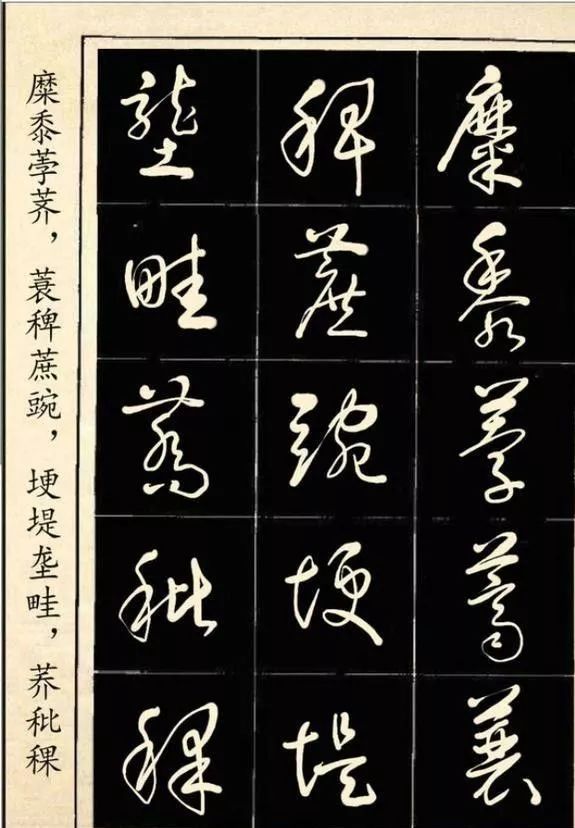 糜黍荸薺蓑
稗蔗豌埂堤
壟畦蕎秕稞
糜黍荸荠，蓑稗蔗豌，埂堤垄畦，荞秕稞